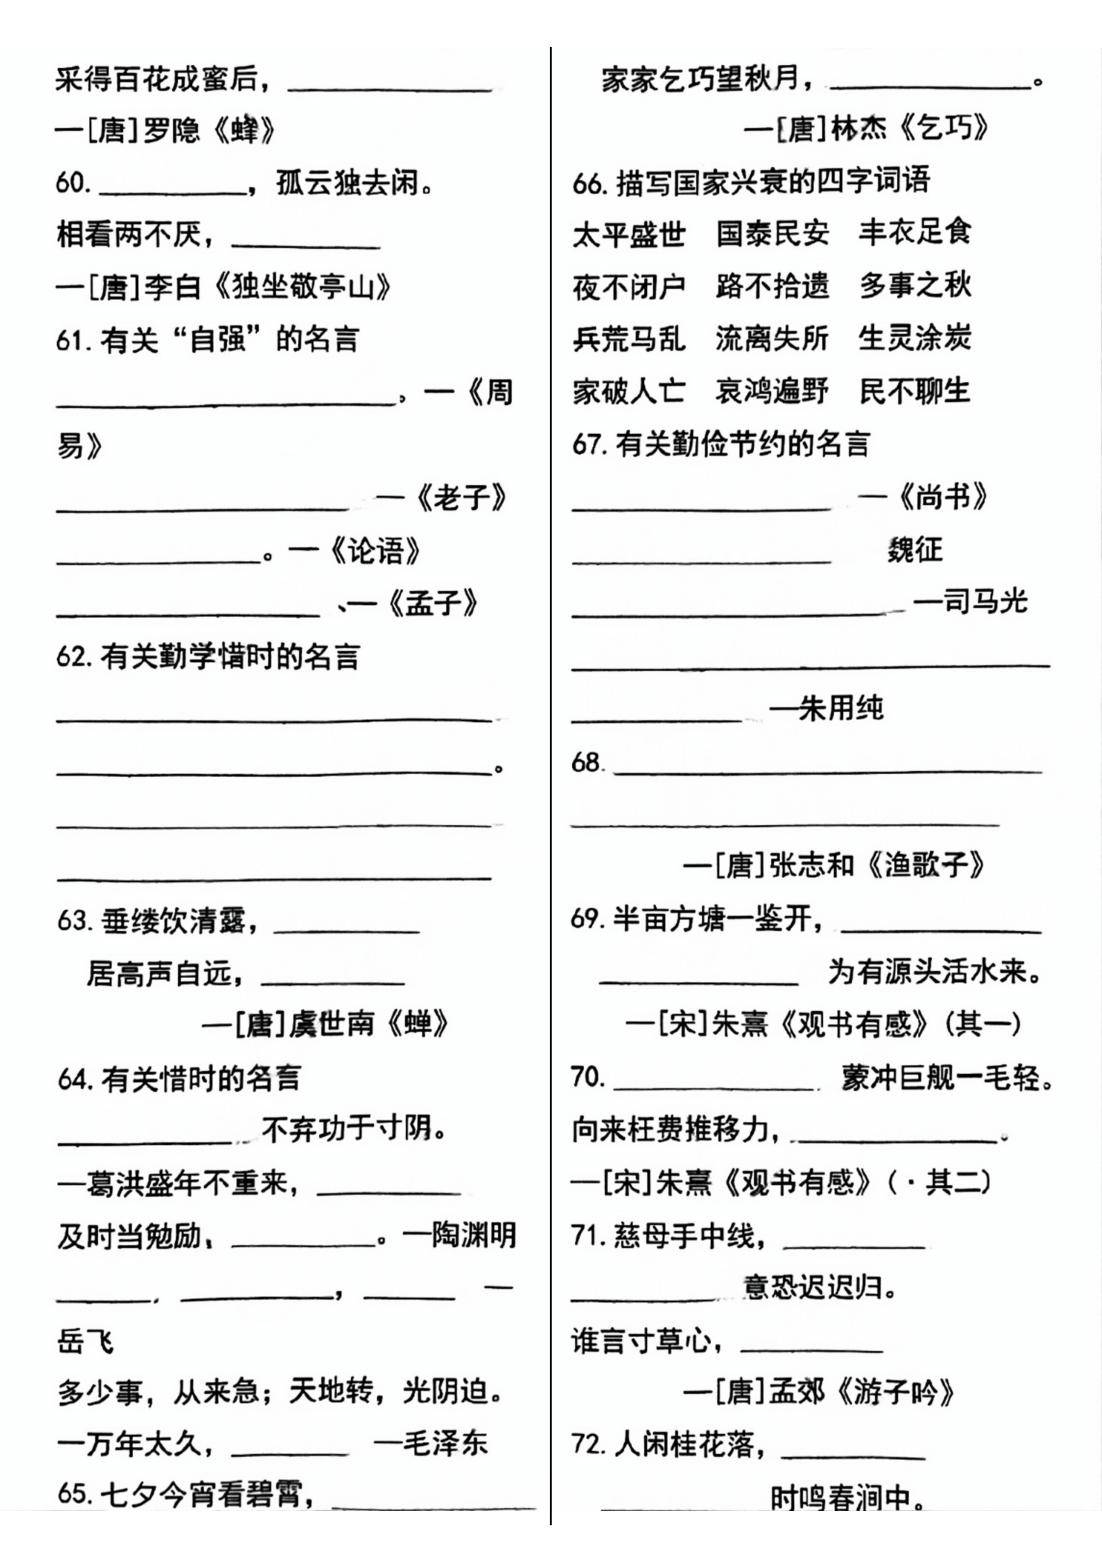 采得百花成蜜后，
—[唐]罗隐《蜂》
60. ，孤云独去闲。
相看两不厌，
—[唐]李白《独坐敬亭山》
61.有关“自强”的名言
。—《周
易》
—《老子》
。—《论语》
、—《孟子》
62.有关勤学惜时的名言
。
63.垂缕饮清露，
居高声自远，
—[唐]虞世南《蝉》
64.有关惜时的名言
不弃功于寸阴。
—葛洪盛年不重来，
及时当勉励， 。—陶渊明
， ， —
岳飞
多少事，从来急；天地转，光阴迫。
一万年太久， —毛泽东
65.七夕今宵看碧霄，
家家乞巧望秋月， 。
—[唐]林杰《乞巧》
66.描写国家兴衰的四字词语
太平盛世 国泰民安 丰衣足食
夜不闭户 路不拾遗 多事之秋
兵荒马乱 流离失所 生灵涂炭
家破人亡 哀鸿遍野 民不聊生
67.有关勤俭节约的名言
—《尚书》
魏征
—司马光
—朱用纯
68.
—[唐]张志和《渔歌子》
69.半亩方塘一鉴开，
为有源头活水来。
—[宋]朱熹《观书有感》(其一)
70. 蒙冲巨舰一毛轻。
向来枉费推移力， 。
—[宋]朱熹《观书有感》(·其二)
71.慈母手中线，
意恐迟迟归。
谁言寸草心，
—[唐]孟郊《游子吟》
72.人闲桂花落，
时鸣春涧中。